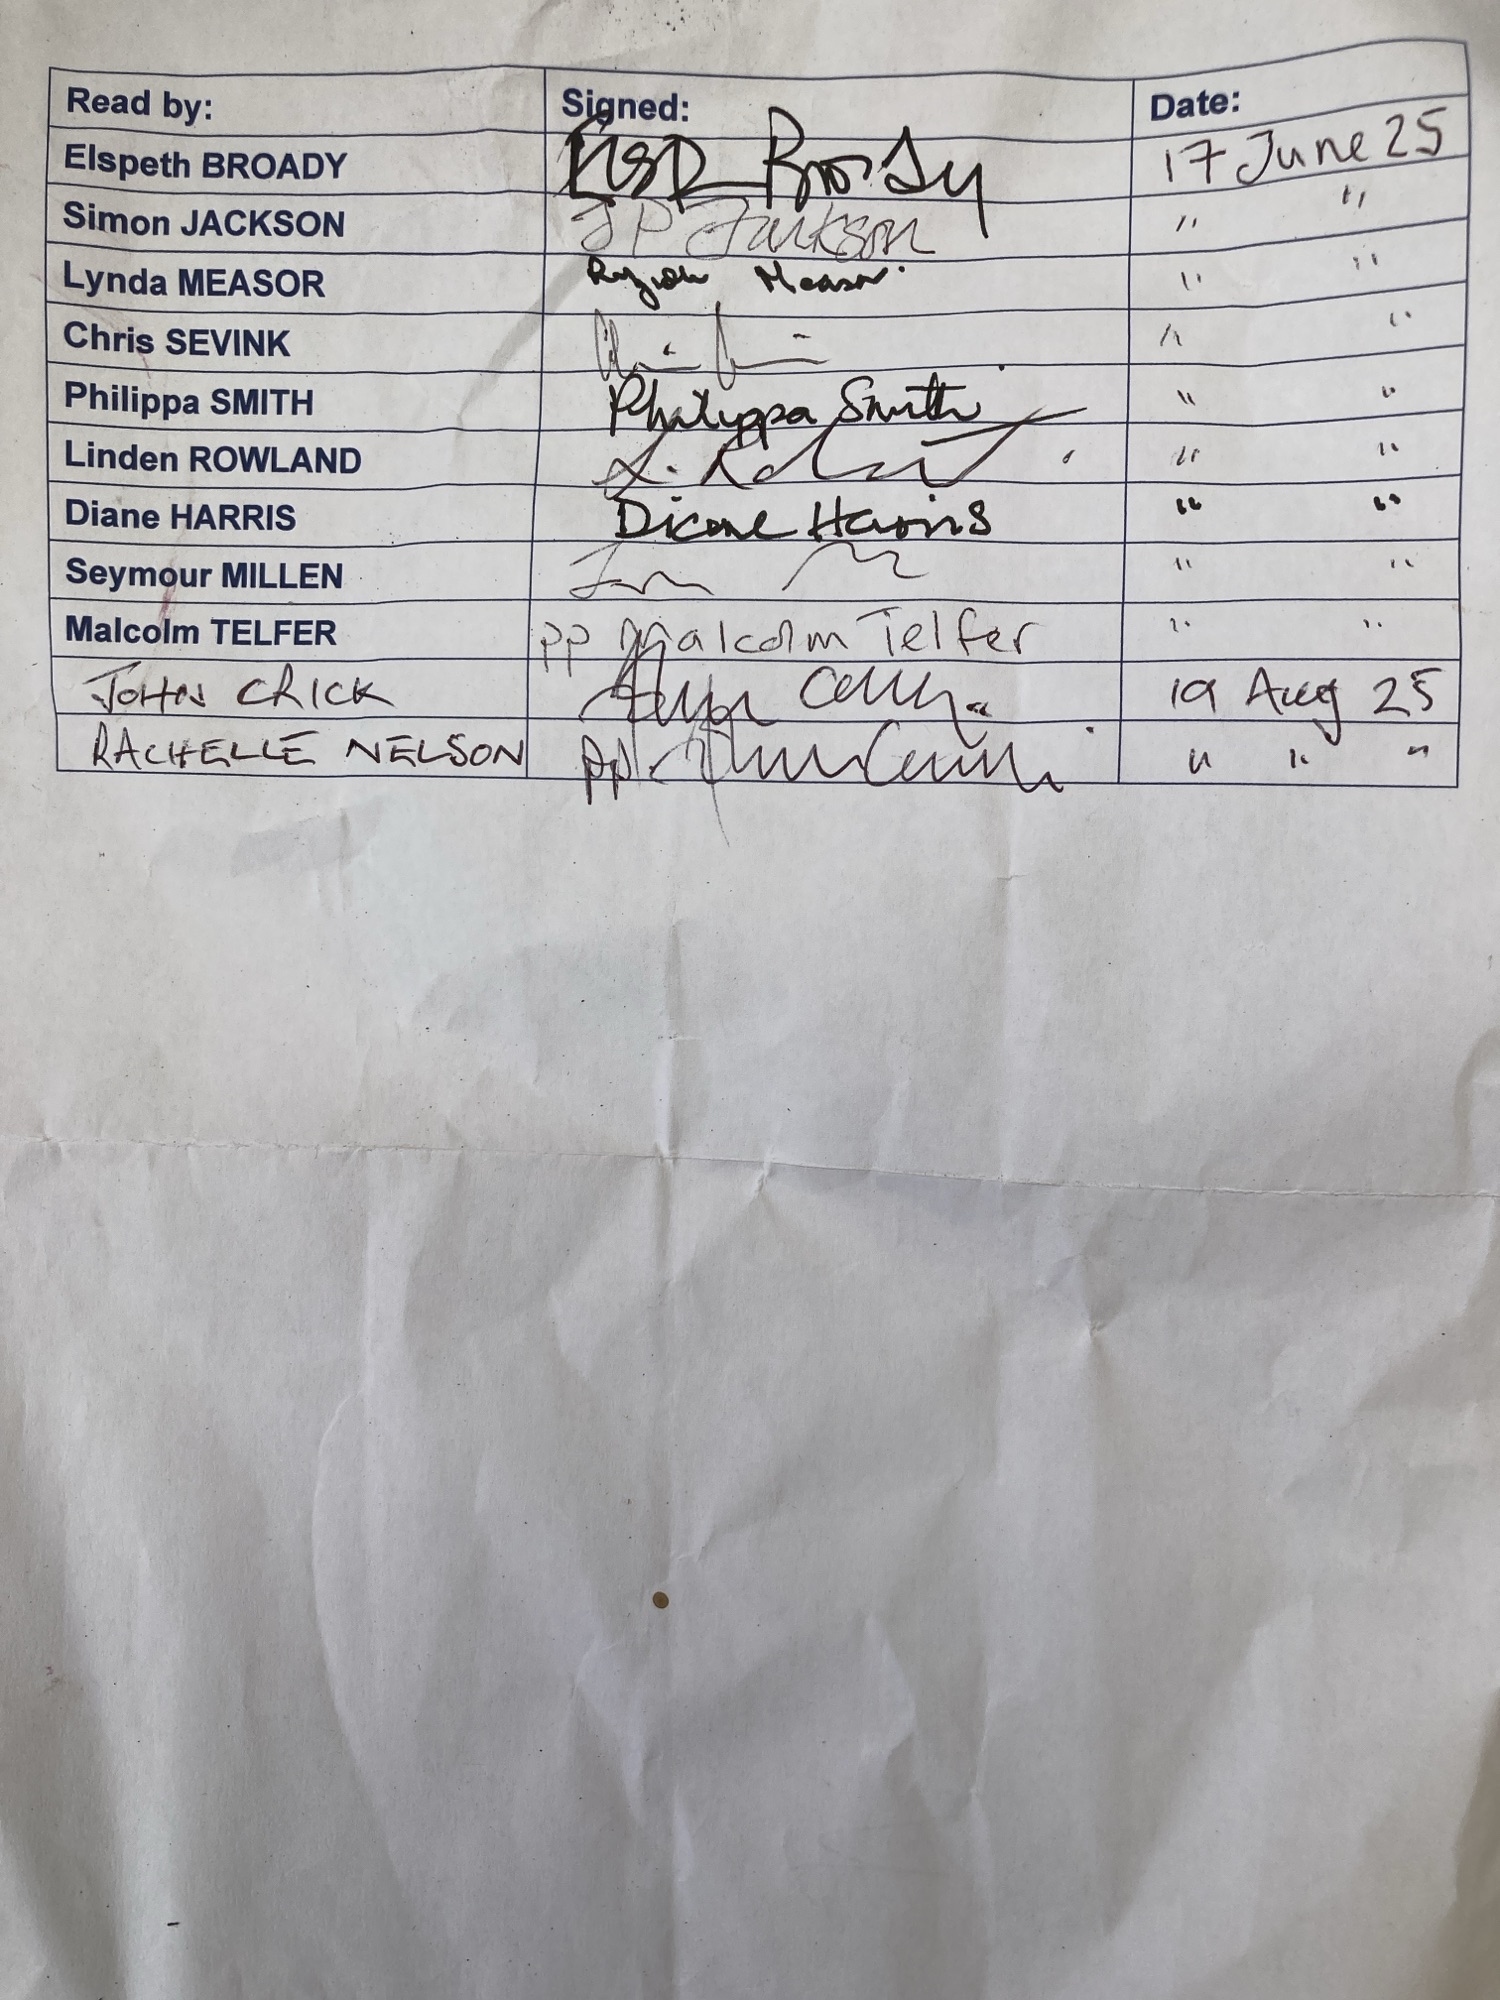 Read by: Signed: Date:
Elspeth BROADY Broady 17 June 25
Simon JACKSON J P Jackson " "
Lynda MEASOR Measor " "
Chris SEVINK " "
Philippa SMITH Philippa Smith " "
Linden ROWLAND L. " "
Diane HARRIS Diane Harris " "
Seymour MILLEN " "
Malcolm TELFER pp Malcolm Telfer " "
JOHN CRICK 19 Aug 25
RACHELLE NELSON pp " " "